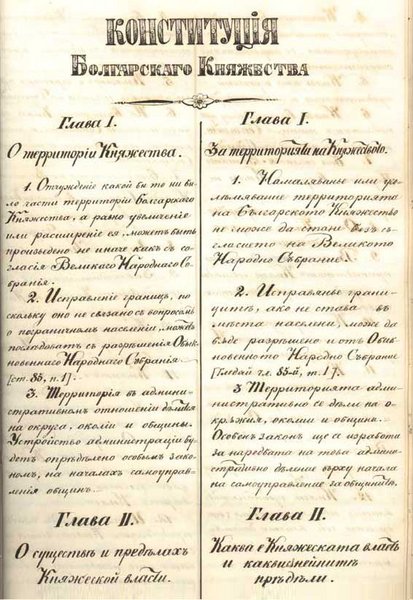 КОНСТИТУЦІЯ
Болгарскаго Княжества
Глава I.
О территоріи Княжества.
1. Отчужденіе какой бы то ни бы-
ло части территоріи Болгарскаго
Княжества, а равно увеличеніе
или расширеніе ея, можетъ быть
произведено не иначе какъ съ со-
гласія Великаго Народнаго Со-
бранія.
2. Исправленіе границъ, по
скольку оно не связано съ вопросомъ
о пограничномъ населеніи, можетъ
послѣдовать съ разрѣшенія Обык-
новеннаго Народнаго Собранія
[ст. 85, п. 1].
3. Территорія въ админи-
стративномъ отношеніи дѣлится
на округа, околіи и общины.
Устройство администраціи бу-
детъ опредѣлено особымъ зако-
номъ, на началахъ самоуправ-
ленія общинъ.
Глава II.
О существѣ и предѣлахъ
Княжеской власти.
Глава I.
За територията на Княжеството.
1. Намаляванье или уго-
лѣмяванье територията
на Българското Княжество
не може да стане безъ съ-
гласието на Великото
Народно Събрание.
2. Исправянье грани-
цитѣ, ако не става въ
мѣста населени, може да
бѫде разрѣшено и отъ Обик-
новенното Народно Събрание
[Гледай гл. 85-й, т. 1].
3 Територията адми-
нистративно се дѣли на о-
крѫжия, околии и общини.
Особенъ законъ ще се изработи
за наредбата на това админи-
стративно дѣление върху начала
на самоуправление за общинитѣ.
Глава II.
Каква е Княжеската власть
и какви сѫ нейнитѣ
прѣдѣли.